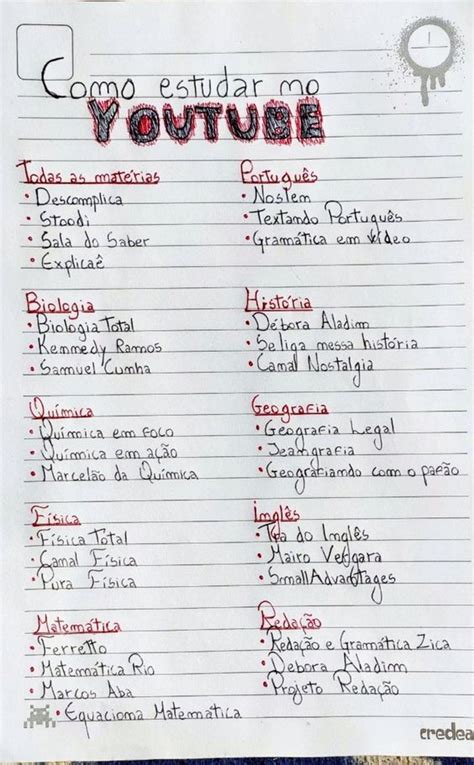 Como estudar no
YOUTUBE
Todas as matérias
• Descomplica
• Stoodi
• Sala do Saber
• Explicaê
Português
• Noslen
• Textando Português
• Gramática em vídeo
Biologia
• Biologia Total
• Kennedy Ramos
• Samuel Cunha
História
• Débora Aladim
• Se liga nessa história
• Canal Nostalgia
Química
• Química em foco
• Química em ação
• Marcelão da Química
Geografia
• Geografia Legal
• Jeangrafia
• Geografiando com o paeão
Física
• Física Total
• Canal Física
• Pura Física
Inglês
• do Inglês
• Mairo Vergara
• SmallAdvantages
Matemática
• Ferretto
• Matemática Rio
• Marcos Aba
• Equaciona Matemática
Redação
• Redação e Gramática Zica
• Debora Aladim
• Projeto Redação
credea